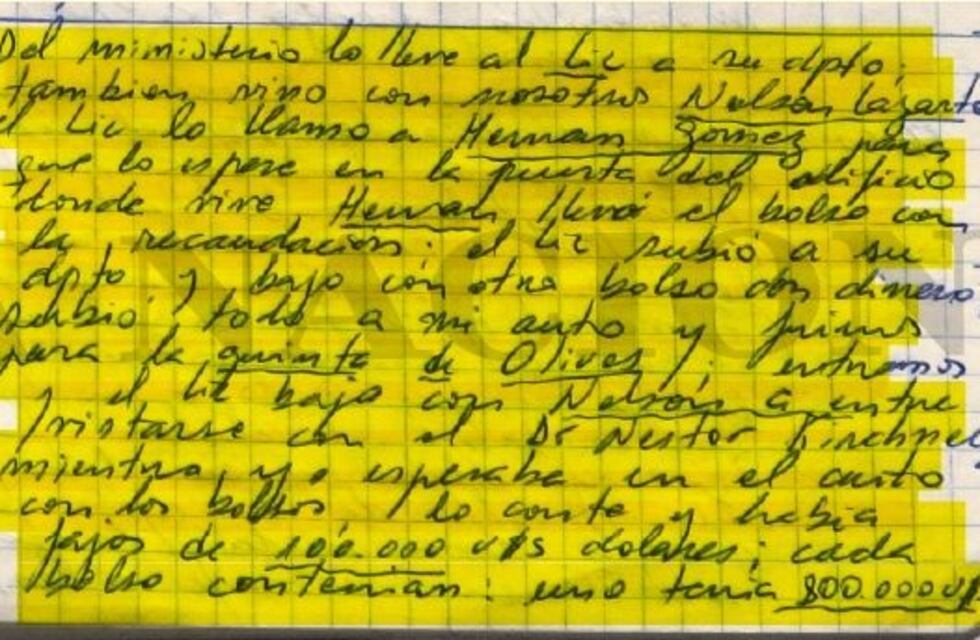 Del ministerio lo lleve al Lic a su dpto;
tambien vino con nosotros Nelson Lazarte
el Lic lo llamo a Hernan Gomez para
que lo espere en la puerta del edificio
donde vive, Hernan, llevó el bolso con
la recaudacion; el Lic subió a su
dpto y bajo con otro bolso con dinero
subió todo a mi auto y fuimos
para la quinta de Olivos; entramos
y el Lic bajo con Nelson a entre
/vistarse con el Dr Nestor Kirchner
mientras yo esperaba en el auto
con los bolsos / lo conte y habia
fajos de 100.000 u$s dolares; cada
bolso contenian: uno tenia 800.000 u$
NACION